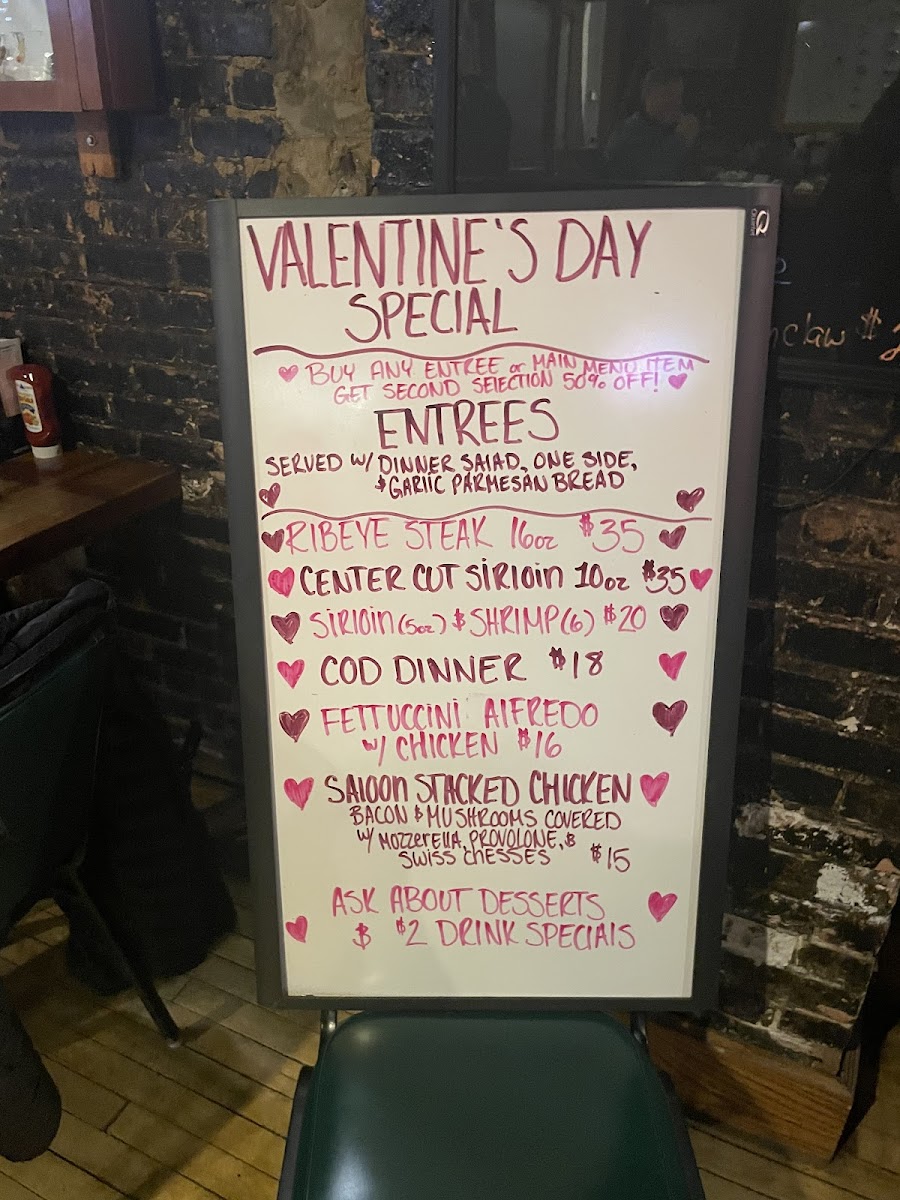 VALENTINE'S DAY
SPECIAL
BUY ANY ENTREE or MAIN MENU ITEM
GET SECOND SElECTION 50% OFF!
ENTREES
SERVED W/ DINNER SAlAD, ONE SIDE,
& GARlIC PARMESAN BREAD
RIBEYE STEAK 16oz $35
CENTER CUT SiRlOin 10oz $35
SiRlOin (5oz) & SHRIMP (6) $20
COD DINNER $18
FETTUCCINI AlFREDO
w/ CHICKEN $16
SAlOOn STACKED CHICKEN
BACON & MUSHROOMS COVERED
W/ MOZZERELLA, PROVOLONE, &
SWISS CHESSES $15
ASK ABOUT DESSERTS
& $2 DRINK SPECIAlS
Quartet
claw $